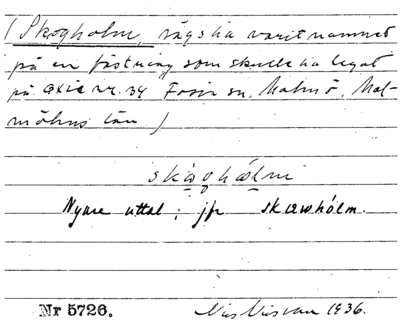 (Skogholm, sägs ha varit namnet
på en fästning som skulle ha legat
på axie nr. 34 Fosie sn. Malmö, Mal-
möhus län)
Nyare uttal; jfr
Nr 5726. Nils Nilsson 1936.